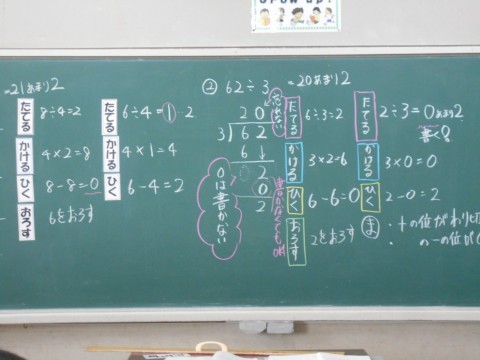 =21あまり2
たてる 8÷4=2
かける 4×2=8
ひく 8-8=0
おろす 6をおろす
たてる 6÷4=1…2
かける 4×1=4
ひく 6-4=2
② 62÷3=20あまり2
20
3)62
6↓
2
0
2
0は書かない
忘れない
書かなくてもOK
たてる 6÷3=2
かける 3×2=6
ひく 6-6=0
おろす 2をおろす
たてる 2÷3=0あまり2
書く!
かける 3×0=0
ひく 2-0=2
ま
・十の位がわり切
の一の位が